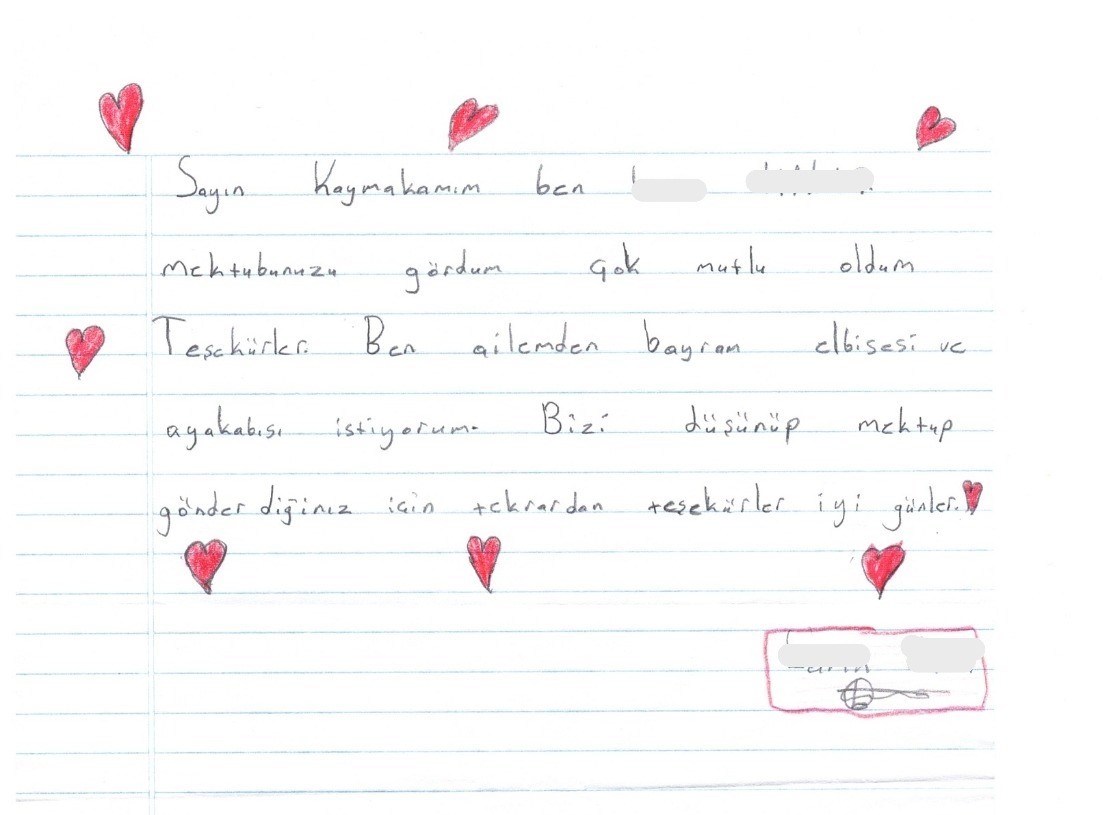 Sayın Kaymakamım ben
mektubunuzu gördum çok mutlu oldum
Teşekürler. Ben ailemden bayram elbisesi ve
ayakabısı istiyorum. Bizi düşünüp mektup
gönderdiğiniz için tekrardan teşekürler iyi günler.